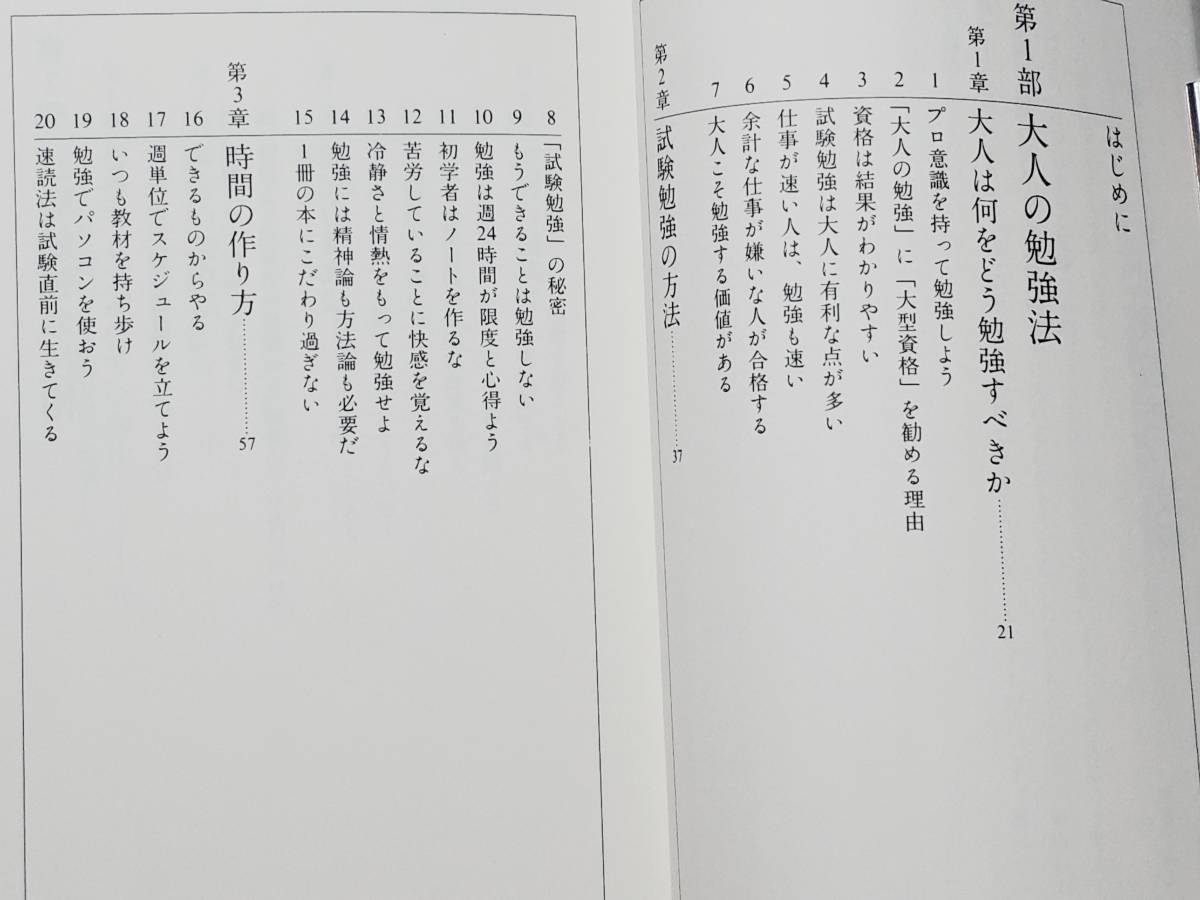 はじめに
第1部 大人の勉強法
第1章 大人は何をどう勉強すべきか…………21
1 プロ意識を持って勉強しよう
2 「大人の勉強」に「大型資格」を勧める理由
3 資格は結果がわかりやすい
4 試験勉強は大人に有利な点が多い
5 仕事が速い人は、勉強も速い
6 余計な仕事が嫌いな人が合格する
7 大人こそ勉強する価値がある
第2章 試験勉強の方法…………37
8 「試験勉強」の秘密
9 もうできることは勉強しない
10 勉強は週24時間が限度と心得よう
11 初学者はノートを作るな
12 苦労していることに快感を覚えるな
13 冷静さと情熱をもって勉強せよ
14 勉強には精神論も方法論も必要だ
15 1冊の本にこだわり過ぎない
第3章 時間の作り方…………57
16 できるものからやる
17 週単位でスケジュールを立てよう
18 いつも教材を持ち歩け
19 勉強でパソコンを使おう
20 速読法は試験直前に生きてくる